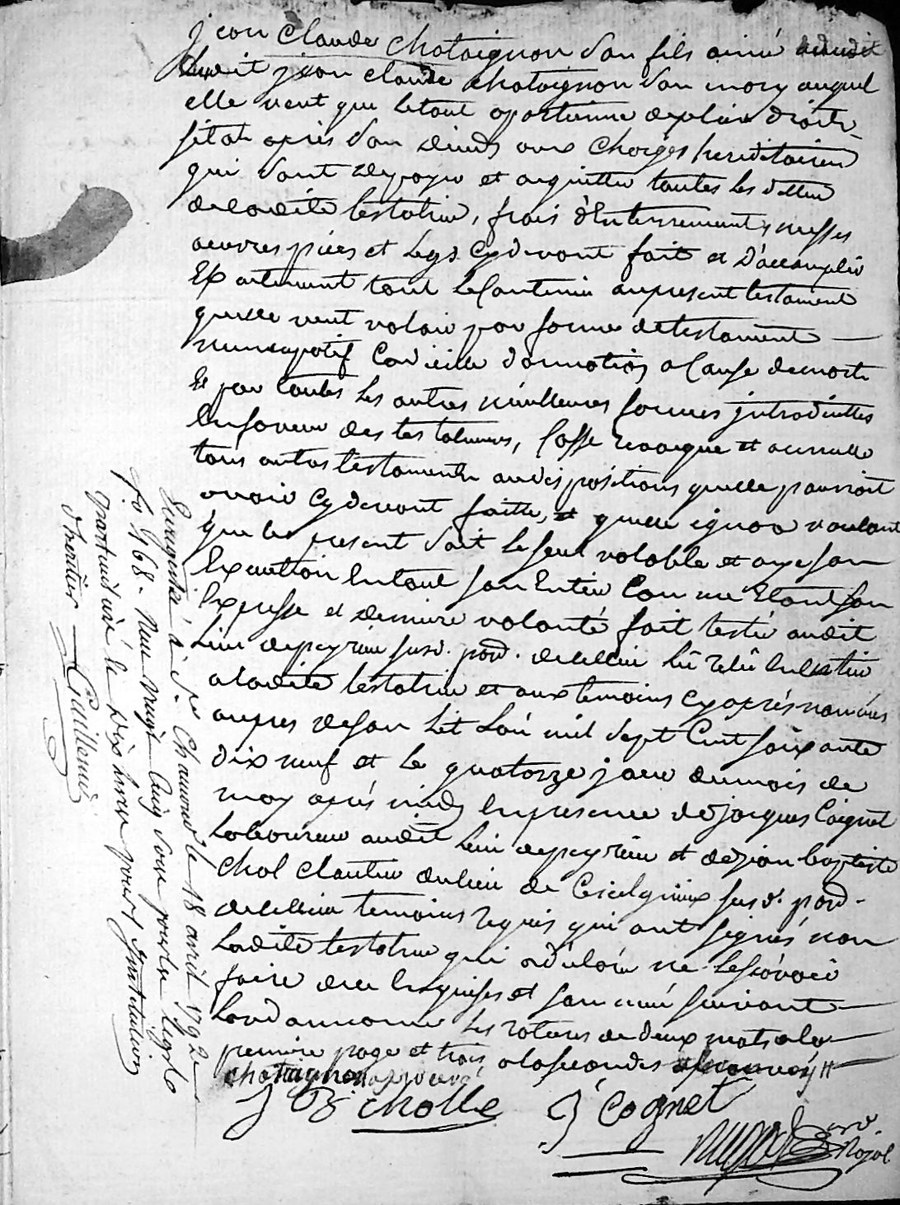 jean Claude chataignon son fils ainé
dudit jean claude chataignon son mary auquel
elle veut que le tout apartienne de plein droit
sitot après son décès aux charges hereditaires
qui sont de payer et aquitter toutes les dettes
de ladite testatrice, frais d'Enterrement, messes
oeuvres pies et legs cydevont fait et d'accomplir
Exactement tout le Contenu au present testament
quelle veut valoir par forme de testament
nuncupatif Codicille donnation a Cause de mort
Et par toutes les autres meilleures formes introduittes
En faveur des testateurs, Casse revoque et annulle
tous autres testaments ou dispositions quelle pourroit
avoir cydevont faitte, et quelle ignore voulant
que le present soit le seul valable et aye son
Execution En tout son Entier Comme Etant son
Expresse et derniere volonté fait testé audit
Lieu susd. par. de cellieu lû relû
a ladite testatrice et aux temoins cyaprés nommés
aupres de son Lit L'an mil sept Cent soixante
dix neuf et le quatorze jour du mois de
may aprés midy En presence de jacques Coignet
Laboureur audit Lieu et de jean baptiste
Chol Cloutier du lieu de susd. par.
de cellieu temoins requis qui ont signés non
Ladite testatrice qui a déclaré ne le sçavoir
faire de ce Enquise et sommée suivant
Lordonnance les ratures de deux mots a la
premiere page et trois a la seconde approuvées
chataignon approuvé
J B cholle J Cognet
not. Royal
Enregistré à St Chamond le 18 avril 1792
fo 168. Reçu
quarante sols le dixieme pour l'institution
d'heritier Guillemin